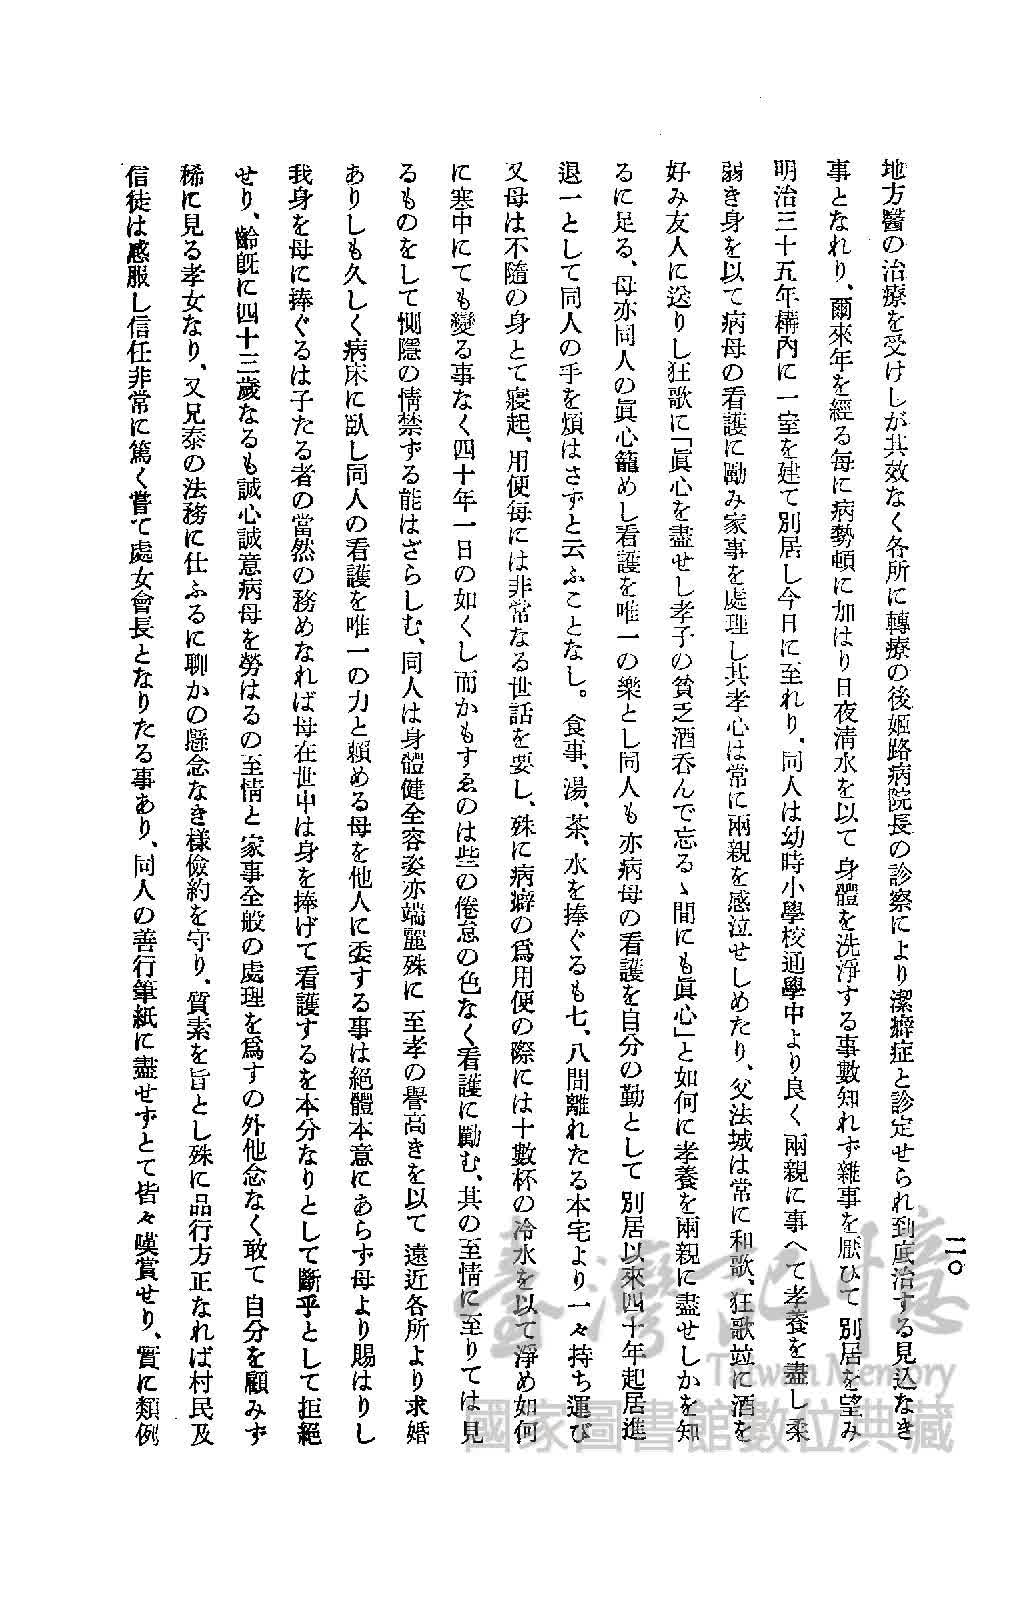 二〇
地方醫の治療を受けしが其效なく各所に轉療の後姬路病院長の診察により潔癖症と診定せられ到底治する見込なき
事となれり、爾來年を經る每に病勢頓に加はり日夜淸水を以て身體を洗淨する事數知れず雜事を厭ひて別居を望み
明治三十五年構內に一室を建て別居し今日に至れり、同人は幼時小學校通學中より良く兩親に事へて孝養を盡し柔
弱き身を以て病母の看護に勵み家事を處理し其孝心は常に兩親を感泣せしめたり、父法城は常に和歌、狂歌竝に酒を
好み友人に送りし狂歌に「眞心を盡せし孝子の貧乏酒呑んで忘るゝ間にも眞心」と如何に孝養を兩親に盡せしかを知
るに足る、母亦同人の眞心籠めし看護を唯一の樂とし同人も亦病母の看護を自分の勤として別居以來四十年起居進
退一として同人の手を煩はさずと云ふことなし。食事、湯、茶、水を捧ぐるも七、八間離れたる本宅より一々持ち運び
又母は不隨の身とて寢起、用便每には非常なる世話を要し、殊に病癖の爲用便の際には十數杯の冷水を以て淨め如何
に寒中にても變る事なく四十年一日の如くし而かもすゑのは些の倦怠の色なく看護に勵む、其の至情に至りては見
るものをして惻隱の情禁ずる能はざらしむ、同人は身體健全容姿亦端麗殊に至孝の譽高きを以て遠近各所より求婚
ありしも久しく病床に臥し同人の看護を唯一の力と賴める母を他人に委する事は絕體本意にあらず母より賜はりし
我身を母に捧ぐるは子たる者の當然の務めなれば母在世中は身を捧げて看護するを本分なりとして斷乎として拒絕
せり、齡旣に四十三歲なるも誠心誠意病母を勞はるの至情と家事全般の處理を爲すの外他念なく敢て自分を顧みず
稀に見る孝女なり、又兄泰の法務に仕ふるに聊かの懸念なき樣儉約を守り、質素を旨とし殊に品行方正なれば村民及
信徒は感服し信任非常に篤く嘗て處女會長となりたる事あり、同人の善行筆紙に盡せずとて皆々嘆賞せり、實に類例
臺灣記憶
Taiwan Memory
國家圖書館數位典藏